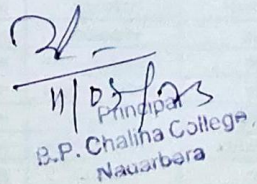 11/05/23
Principal
B.P. Chaliha College
Nagarbera